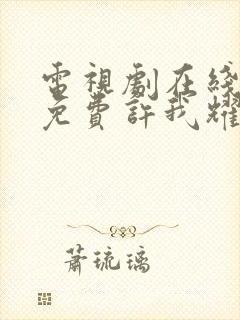 電視劇在綫
免費許我耀
蕭琉璃